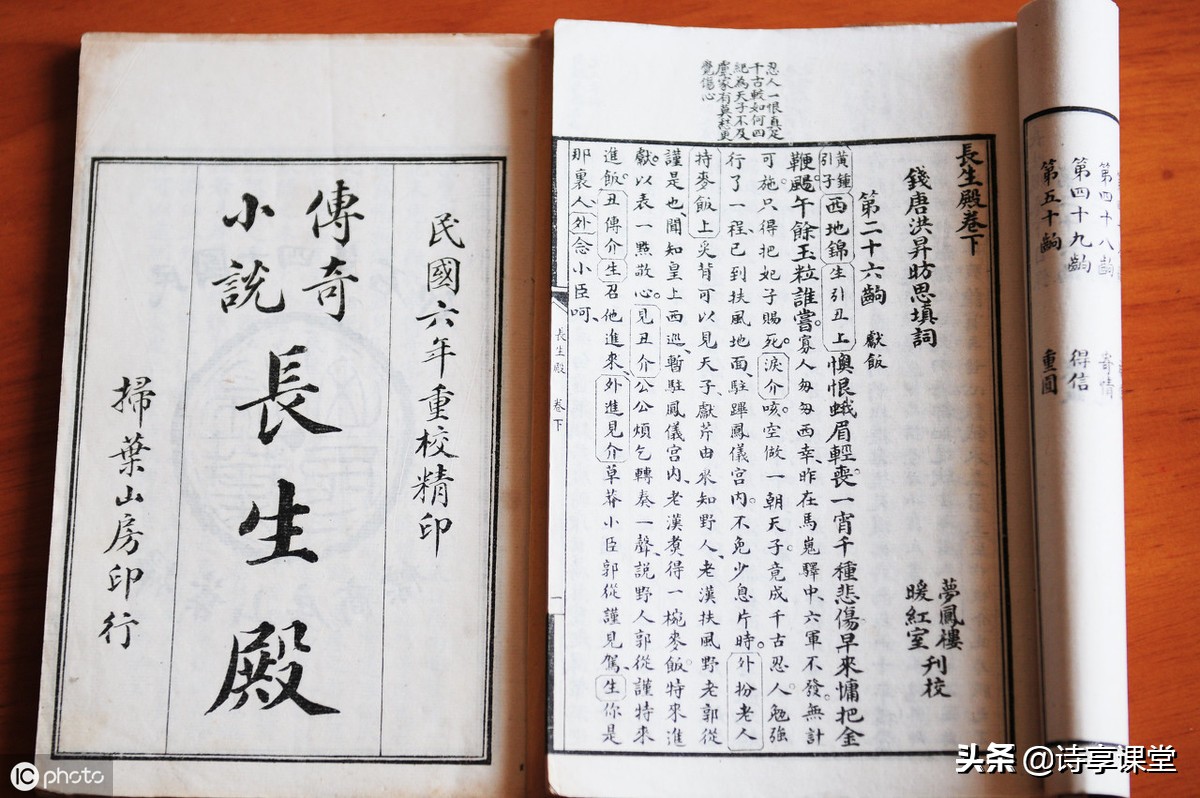 民國六年重校精印
傳奇
小說
長生殿
掃葉山房印行
第四十八齣 寄情
第四十九齣 得信
第五十齣 重圓
忍人一恨真足
千古較如何四
紀為天子不及
盧家有莫愁更
覺傷心
長生殿卷下
錢唐洪昇昉思填詞
夢鳳樓
暖紅室
刊校
第二十六齣 獻飯
黃鍾
引子
西地錦生引丑上懊恨蛾眉輕喪。一宵千種悲傷早來慵把金
鞭颺。午餘玉粒誰嘗。寡人匆匆西幸、昨在馬嵬驛中、六軍不發。無計
可施。只得把妃子賜死。淚介咳。空做一朝天子。竟成千古忍人。勉強
行了一程、已到扶風地面、駐蹕鳳儀宮內。不免少息片時。外扮老人
持麥飯上炙背可以見天子、獻芹由來知野人、老漢扶風野老郭從
謹是也、聞知皇上西巡、暫駐鳳儀宮內、老漢煑得一椀麥飯。特來進
獻。以表一點敬心。見丑介公公煩乞轉奏一聲、說野人郭從謹特來
進飯。丑傳介生召他進來、外進見介草莽小臣郭從謹見駕、生你是
那裏人、外念小臣呵、
長生殿 卷下
一
iC photo
头条@诗享课堂